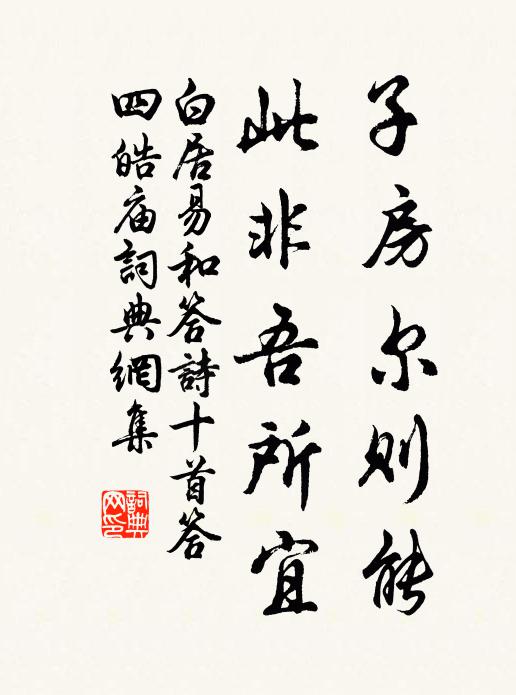 子房尔则能
此非吾所宜
白居易和答詩十首答
四皓庙詞典網集
詞典
网印